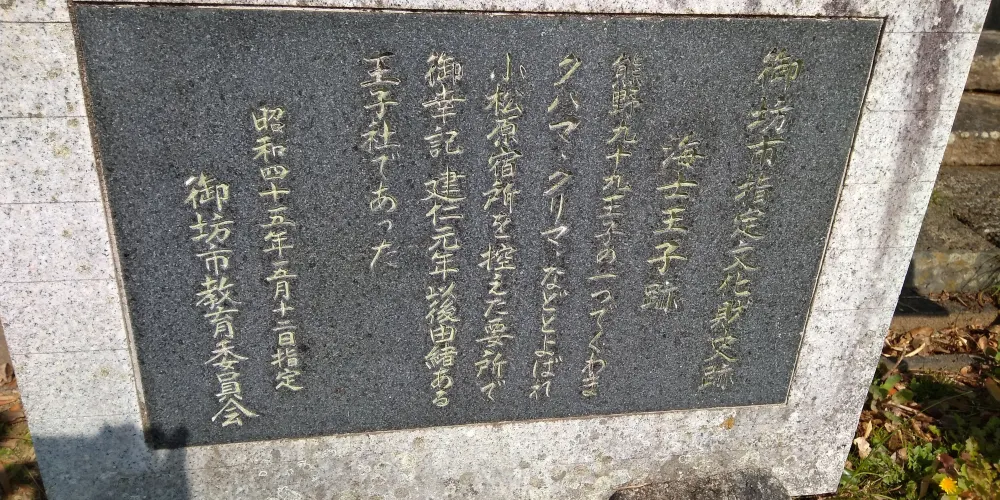 御坊市指定文化財史跡
海士王子跡
熊野九十九王子の一つでくわま
タハマ、クリマ、などとよばれ
小松原宿所を控えた要所で
御幸記 建仁元年 以後由緒ある
王子社であった
昭和四十五年一月十二日指定
御坊市教育委員会